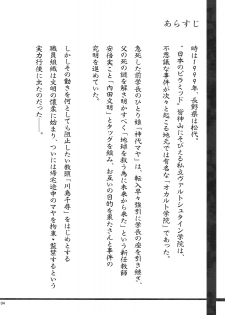 あらすじ
時は１９９９年、長野県は松代、
『日本のピラミッド』皆神山にそびえる私立ヴァルトシュタイン学院は、
不思議な事件が次々と起こる地元では有名な「オカルト学院」であった。
急死した前学長のひとり娘「神代マヤ」は、転入早々強引に学長の座を引き継ぎ、
父の死の謎を解き明かすべく「地球を救う為に未来から来た」という新任教師
安倍実こと「内田文明」とタッグを組み、お互いの目的を果たさんと事件の
究明を進めていた。
しかしその動きを何としても阻止したい教頭「川島千尋」をはじめとする
職員組織は文明の懐柔に始まり、ついには帰宅途中のマヤを拘束・監禁するという
実力行使に出たのだった――。
04